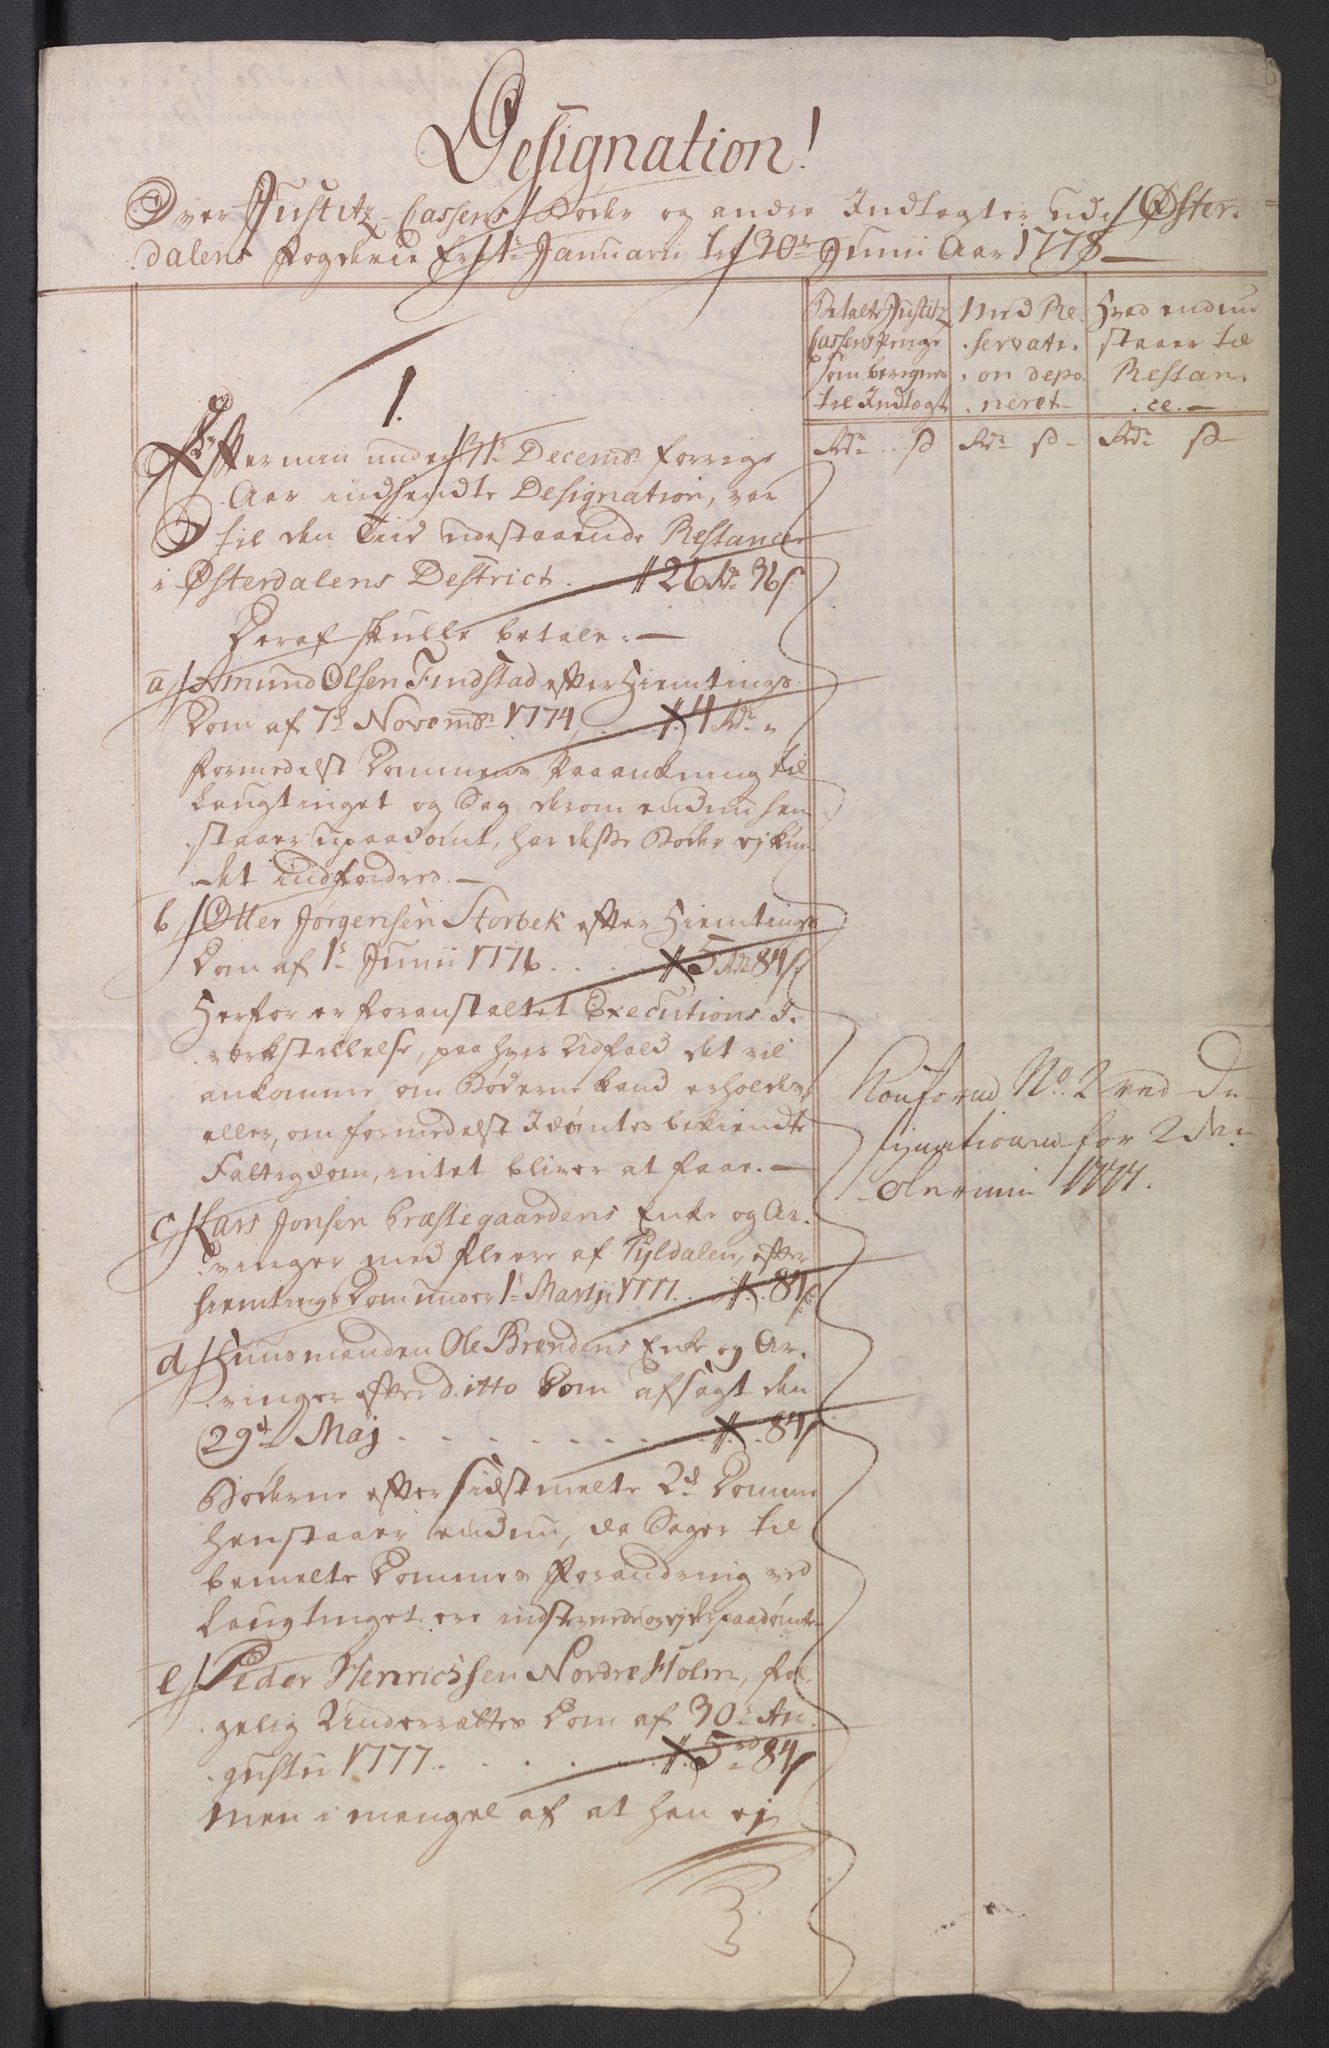 Designation!
Over Justitz-Cassens Bøder og andre Indtegter udi Øster-
dalens Fogderie fra 1te Januarii til 30te Junii Aar 1778
Betalte Justitz
Cassens Penge
som beregnes
til Indtegt
Med Re-
servati-
on depo-
neret
Hvad endnu
staaer til
Restan-
ce.
Rdr ß Rdr ß Rdr ß
1.
Efter min under 31te Decembr forrige
Aar indsendte Designation, var
til den Tiid udestaaende Restancer
i Østerdalens Destrict. 26 Rdr 36 ß
Deraf skulle betale:
a/ Amund Olsen Findstad efter Hiemtings
Dom af 7de Novembr 1774, 4 Rdr „
formedelst Dommens Paaankning til
Laugtinget og Sag derom endnu hen
staaer upaadømt, har disse Bøder ej kun-
det indfordres.
b/ Otter Jørgensen Storbek efter Hiemtings
Dom af 1te Junii 1776 . . . 5 Rd 84 ß
Herfor er foranstaltet Executions I-
verkstillelse, paa hvis Udfald det vil
ankomme om Bøderne kand erholdes,
eller, om formedelst Idømtes bekiendte
Fattigdom, intet bliver at faae.
c/ Lars Jonsen Præstegaardens Enke og Ar-
vinger med fleere af Tyldalen, efter
Hiemtings Dom under 1te Martji 1777 . . 84 ß
d/ Huusmanden Ole Brendens Enke og Ar-
vinger efter ditto Dom afsagt den
29de Maj . . . . . . . 84 ß
Bøderne efter sidstmelte 2de Domme
henstaaer endnu, da Sager til
bemelte Dommes Forandring ved
Laugtinget ere indstevnede og ej der paadømte
e/ Peder Henrichsen Nordre Holm, føl-
gelig Underrettes Dom af 30te Au-
gustii 1777. . . . . . 5 rd 84 ß
men i mangel af at han ej
Konf. No. 2 ved De-
signationen for 2den
Termin 1777.